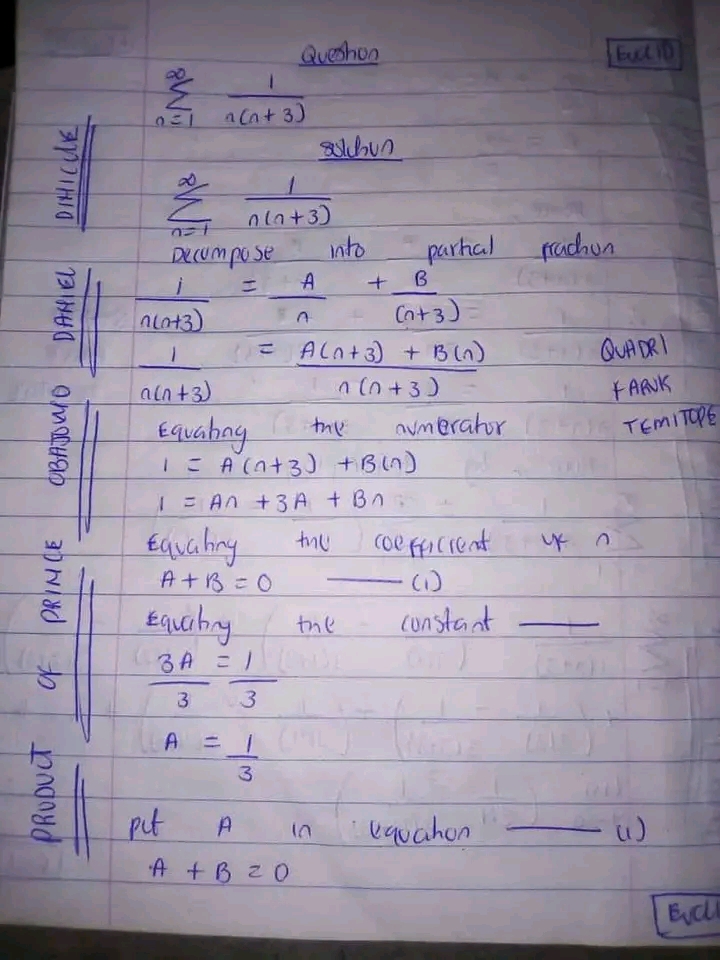 Question
EUCLID
∞
∑ 1
n=1 n(n+3)
Solution
∞
∑ 1
n=1 n(n+3)
Decompose into partial fraction
1/n(n+3) = A/n + B/(n+3)
1/n(n+3) = A(n+3) + B(n)/n(n+3)
QUADRI
FARUK
TEMITOPE
Equating the numerator
1 = A(n+3) + B(n)
1 = An + 3A + Bn
Equating the coefficient of n
A + B = 0 ——— (1)
Equating the constant ———
3A/3 = 1/3
A = 1/3
put A in equation ——— (1)
A + B = 0
PRODUCT OF PRINCE OBAJUWO DANIEL